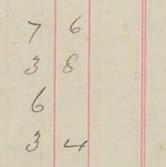 7 6
3 8
6
3 4